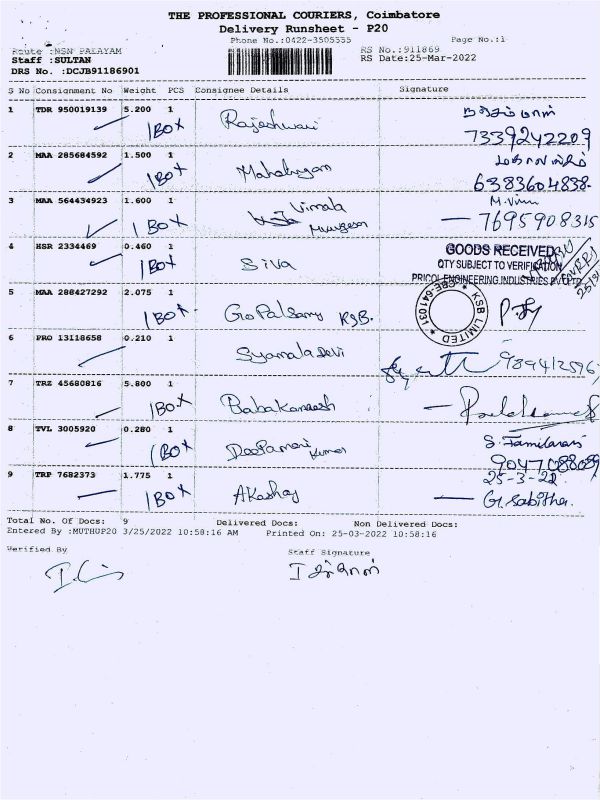 THE PROFESSIONAL COURIERS, Coimbatore
Delivery Runsheet - P20
Phone No.:0422-3505535 Page No.:1
Route :NSN PALAYAM RS No.:911869
Staff :SULTAN RS Date:25-Mar-2022
DRS No. :DCJB91186901
S No Consignment No Weight PCS Consignee Details Signature
1 TDR 950019139 5.200 1
1BOX Rajeshwari
7339242209
2 MAA 285684592 1.500 1
1BOX
6383604838
3 MAA 564434923 1.600 1 Vimala M. Vimu
1BOX Murugesan 7695908315
4 HSR 2334469 0.460 1 GOODS RECEIVED
1BOX Siva QTY SUBJECT TO VERIFICATION
PRICOL ENGINEERING INDUSTRIES PVT LTD
5 MAA 288427292 2.075 1 KSB LIMITED
1BOX GoPalSamy KSB.
6 PRO 13118658 0.210 1
SyamalaDevi
7 TRZ 45680816 5.800 1
1BOX
8 TVL 3005920 0.280 1 S. Tamilarasi
1BOX DeePamani Kumar 9047088089
9 TRP 7682373 1.775 1 25-3-22
1BOX Akashay G. Sabitha.
Total No. Of Docs: 9 Delivered Docs: Non Delivered Docs:
Entered By :MUTHUP20 3/25/2022 10:58:16 AM Printed On: 25-03-2022 10:58:16
Verified By Staff Signature